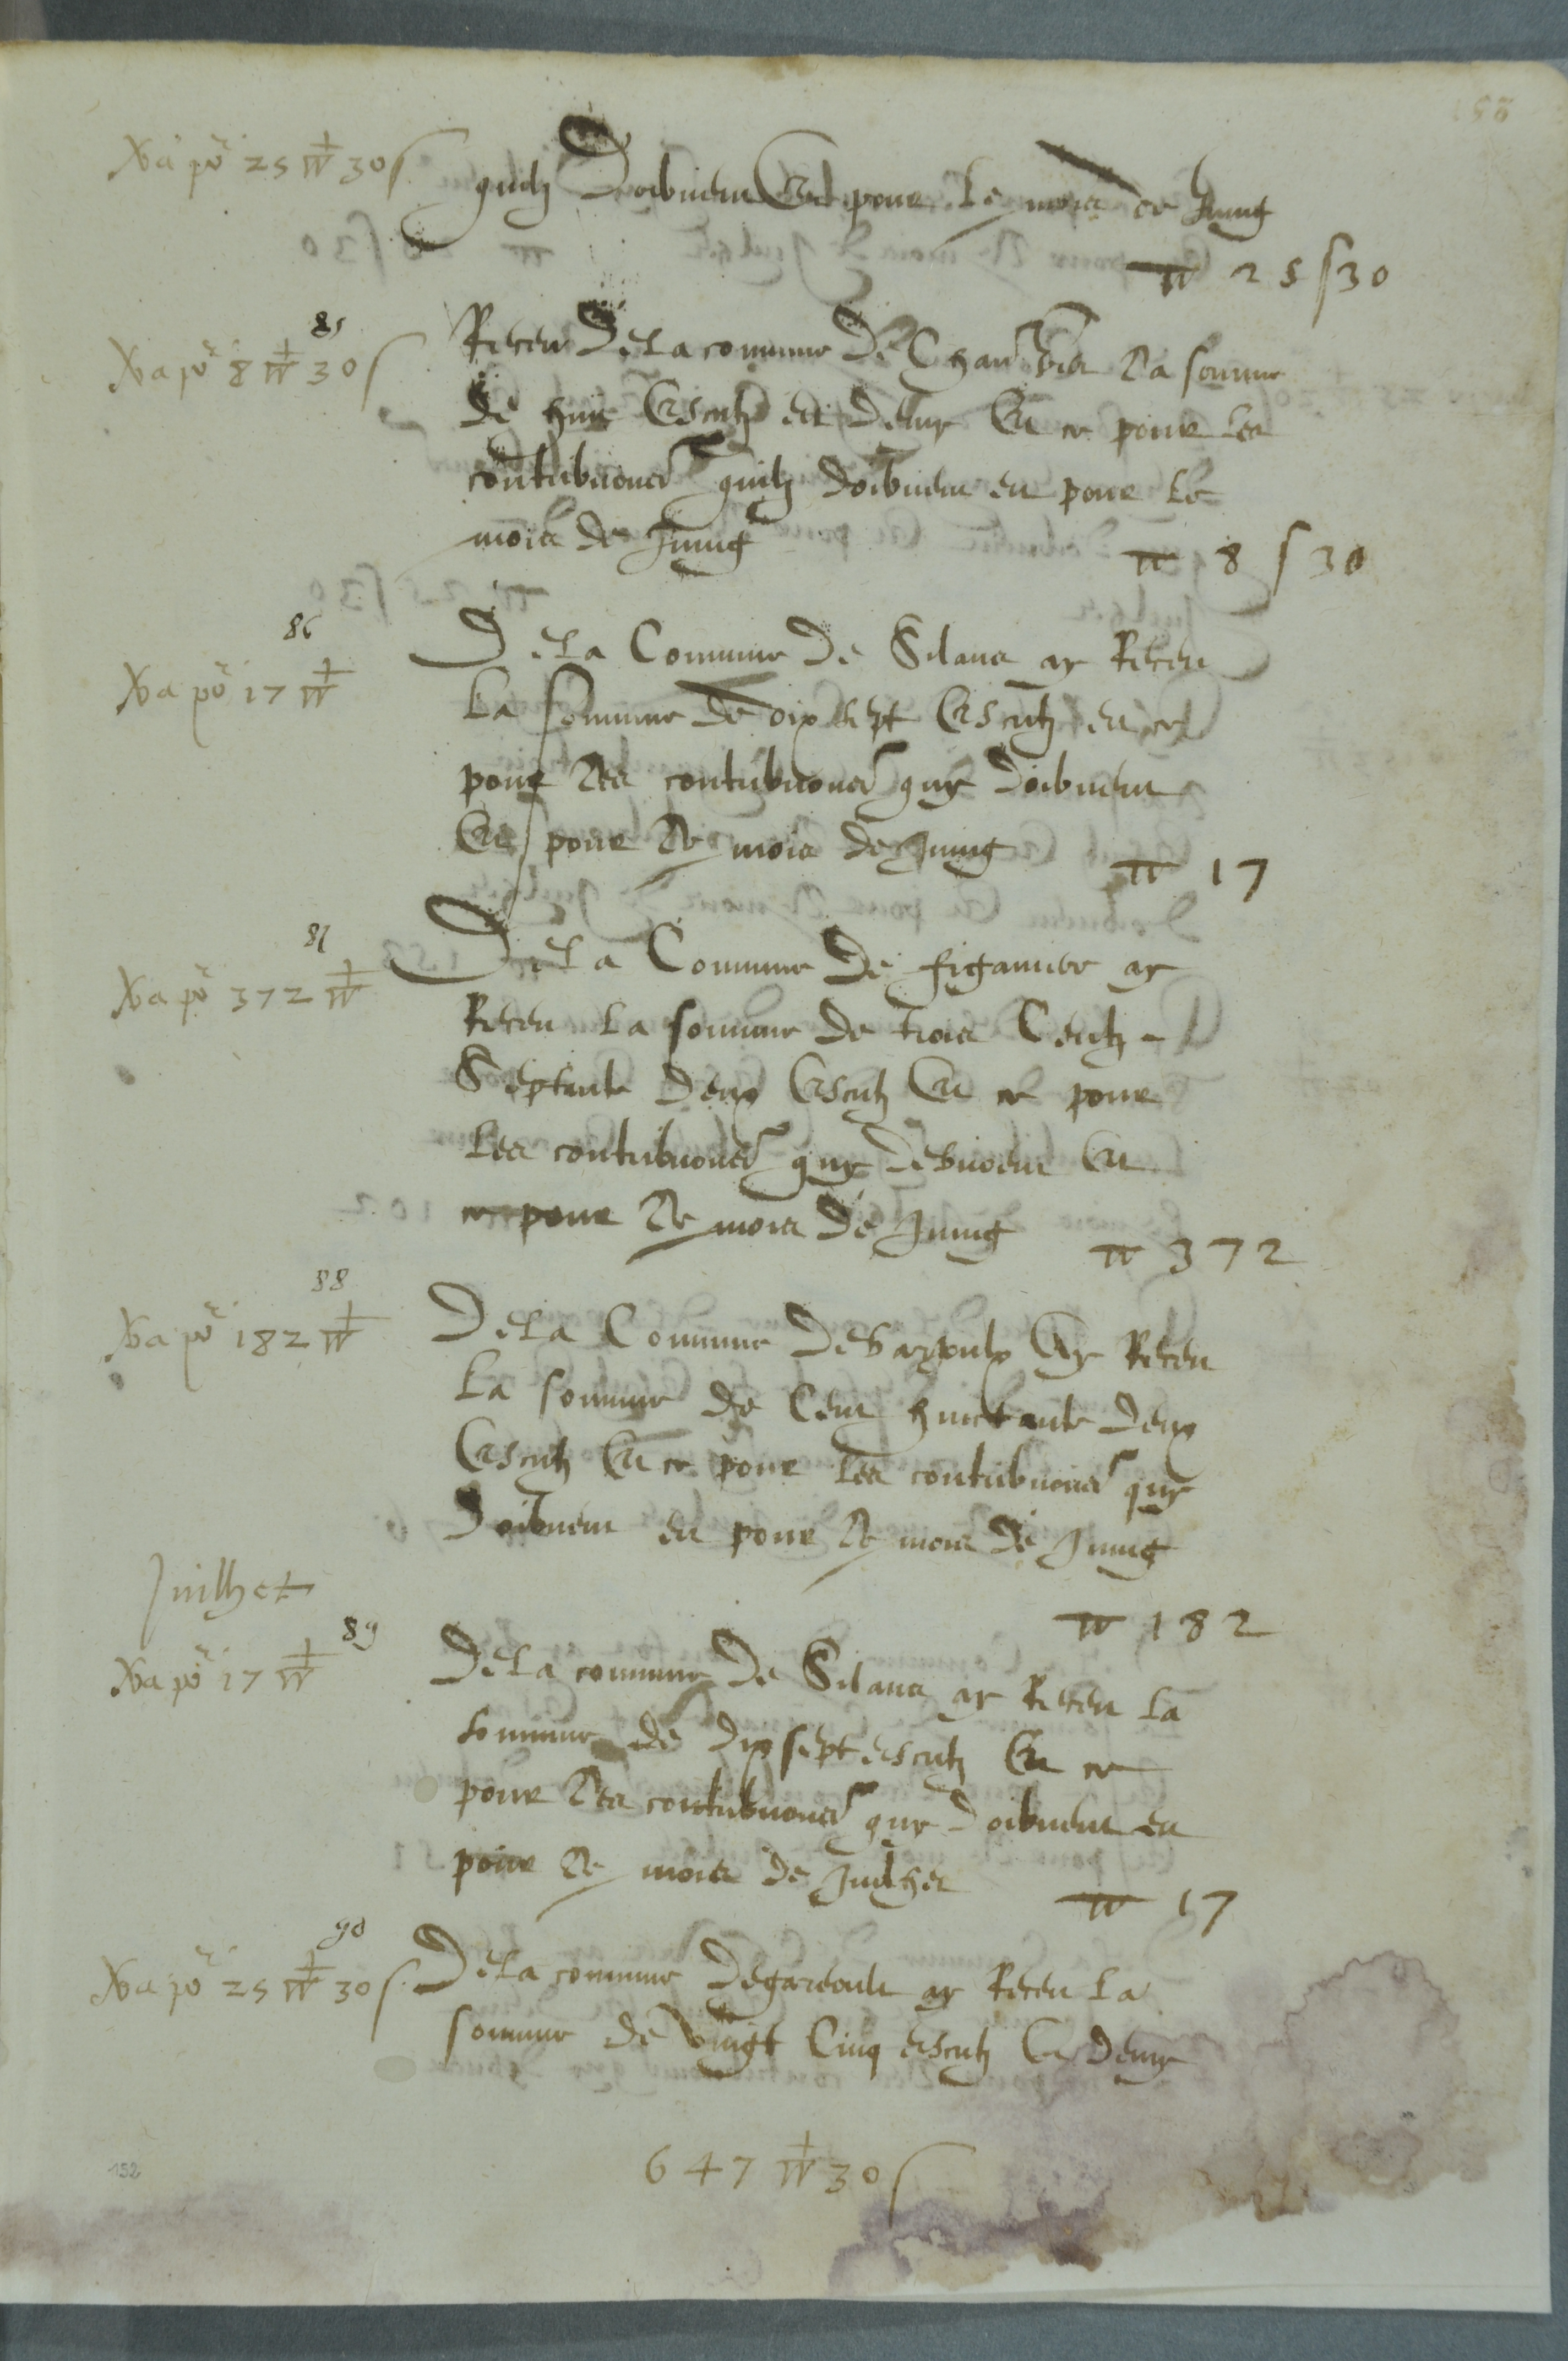 Va por 25 W 30 s
quilz doibvent Et pour le mois de Juing
W 25 s 30
85
Va por 8 W 30 s
Receu De La commune De Chan la somme
de huit Escutz et demy En ce pour les
contribuons quilz doibvent en pour le
mois de Juing
W 8 s 30
86
Va por 17 W
De La Commune De Silans ay Receu
La somme de dix sept Escutz en ce
pour les contribuons quy doibvent
En pour le mois de Juing
W 17
87
Va por 372 W
De La Commune De figanier ay
Receu La somme de trois Centz
Septante Deux Escutz En ce pour
les contribuons quy debvoent En
ce pour le mois de Juing
W 372
88
Va por 182 W
De La Commune De Bargoulx Ay Receu
La somme de Cent huictante deux
Escutz En ce pour les contribuons quy
Doibvent en pour le mois de Juing
W 182
Juilhet
89
Va por 17 W
De La commune De Silans ay Receu La
somme de dix sept escutz En ce
pour les contribuons quy doibvent en
pour le mois de Juilhet
W 17
90
Va por 25 W 30 s
De La commune de gareoult ay Receu La
somme de vingt Cinq escutz Et demy
647 W 30 s
152